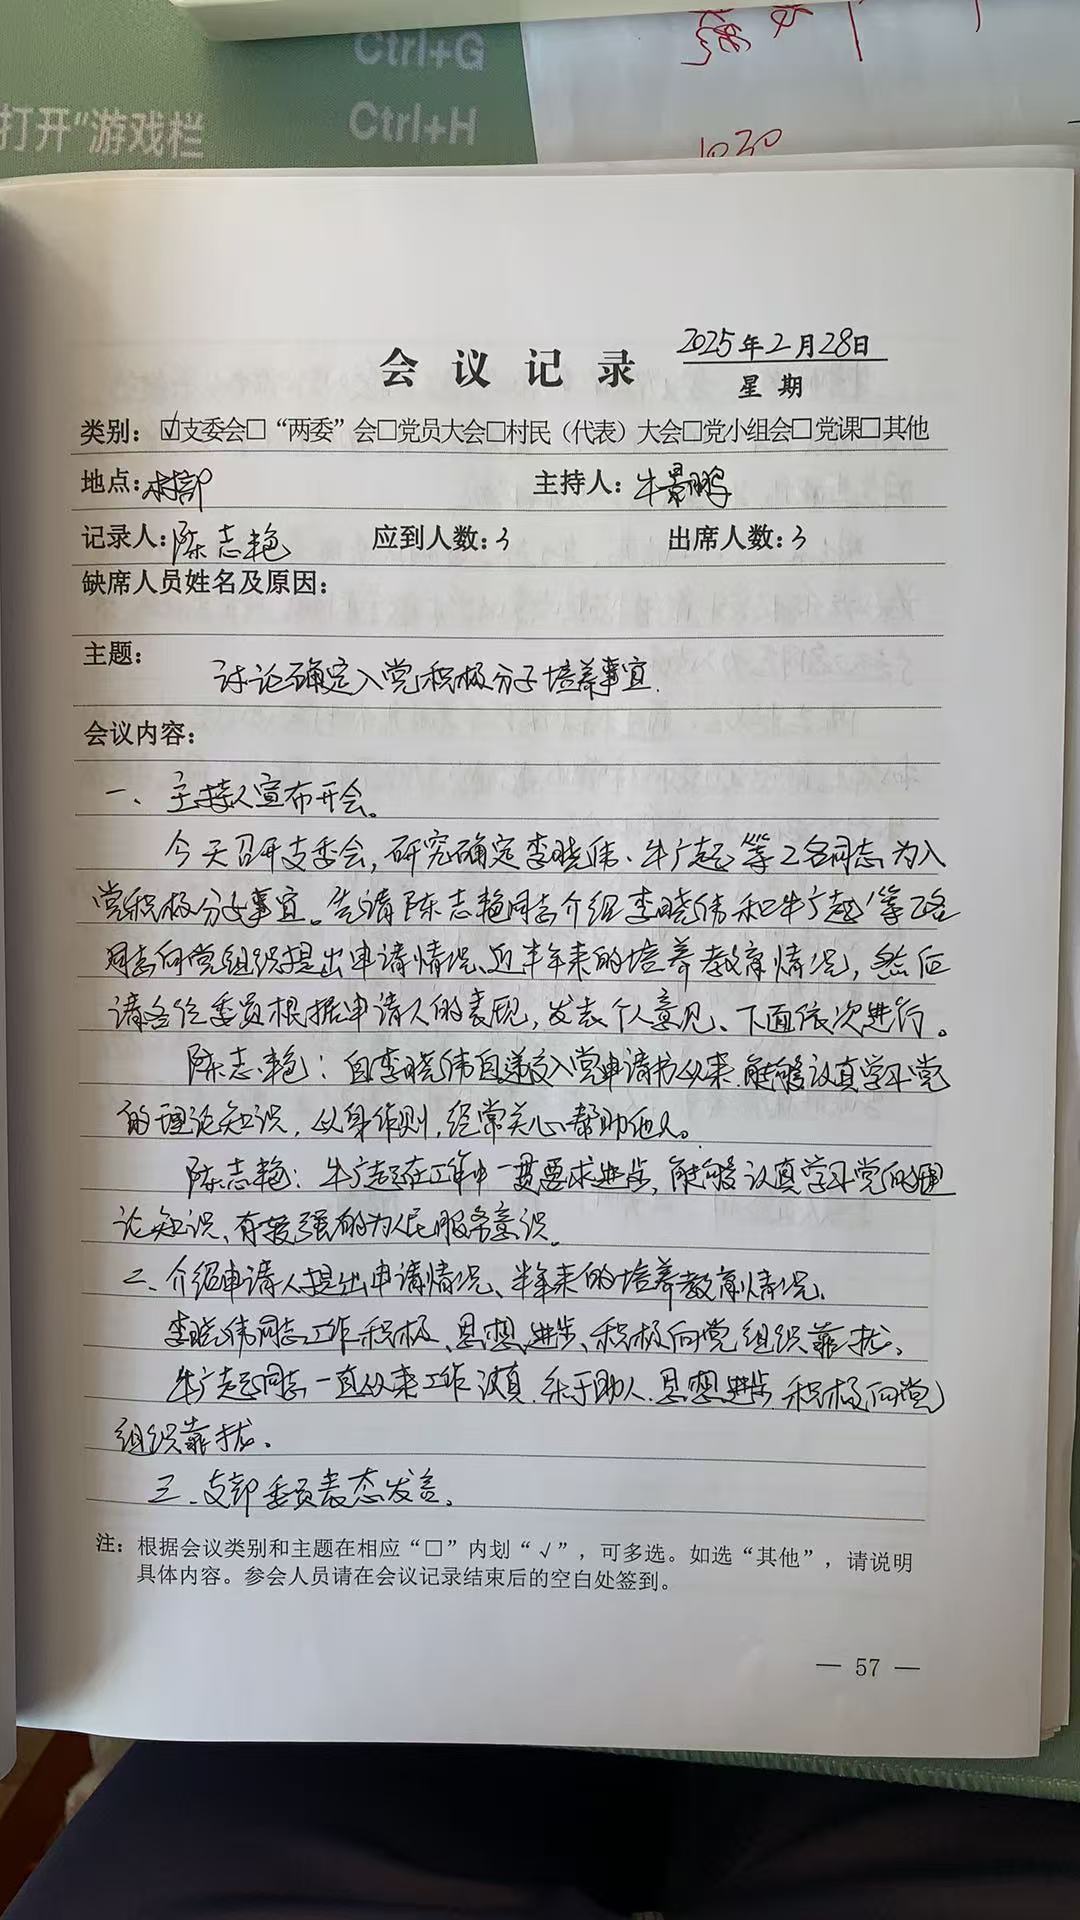 Ctrl+G
打开“游戏栏
Ctrl+H
1030
会议记录 2025年2月28日
星期
类别：☑支委会□“两委”会□党员大会□村民（代表）大会□党小组会□党课□其他
地点：村部 主持人：牛景鹏
记录人：陈志艳 应到人数：3 出席人数：3
缺席人员姓名及原因：
主题： 讨论确定入党积极分子培养事宜.
会议内容：
一、主持人宣布开会。
今天召开支委会，研究确定李晓伟、牛广起等2名同志为入
党积极分子事宜。先请陈志艳同志介绍李晓伟和牛广起等2名
同志向党组织提出申请情况、近半年来的培养教育情况，然后
请各位委员根据申请人的表现，发表个人意见、下面依次进行。
陈志艳：自李晓伟自递交入党申请书以来.能够认真学习党
的理论知识，以身作则，经常关心帮助他人。
陈志艳：牛广起在工作中一贯要求进步，能够认真学习党的理
论知识、有较强的为人民服务意识。
二、介绍申请人提出申请情况、半年来的培养教育情况、
李晓伟同志工作积极、思想进步、积极向党组织靠拢、
牛广起同志一直以来工作认真.乐于助人.思想进步.积极向党
组织靠拢。
三、支部委员表态发言。
注：根据会议类别和主题在相应“□”内划“√”，可多选。如选“其他”，请说明
具体内容。参会人员请在会议记录结束后的空白处签到。
— 57 —